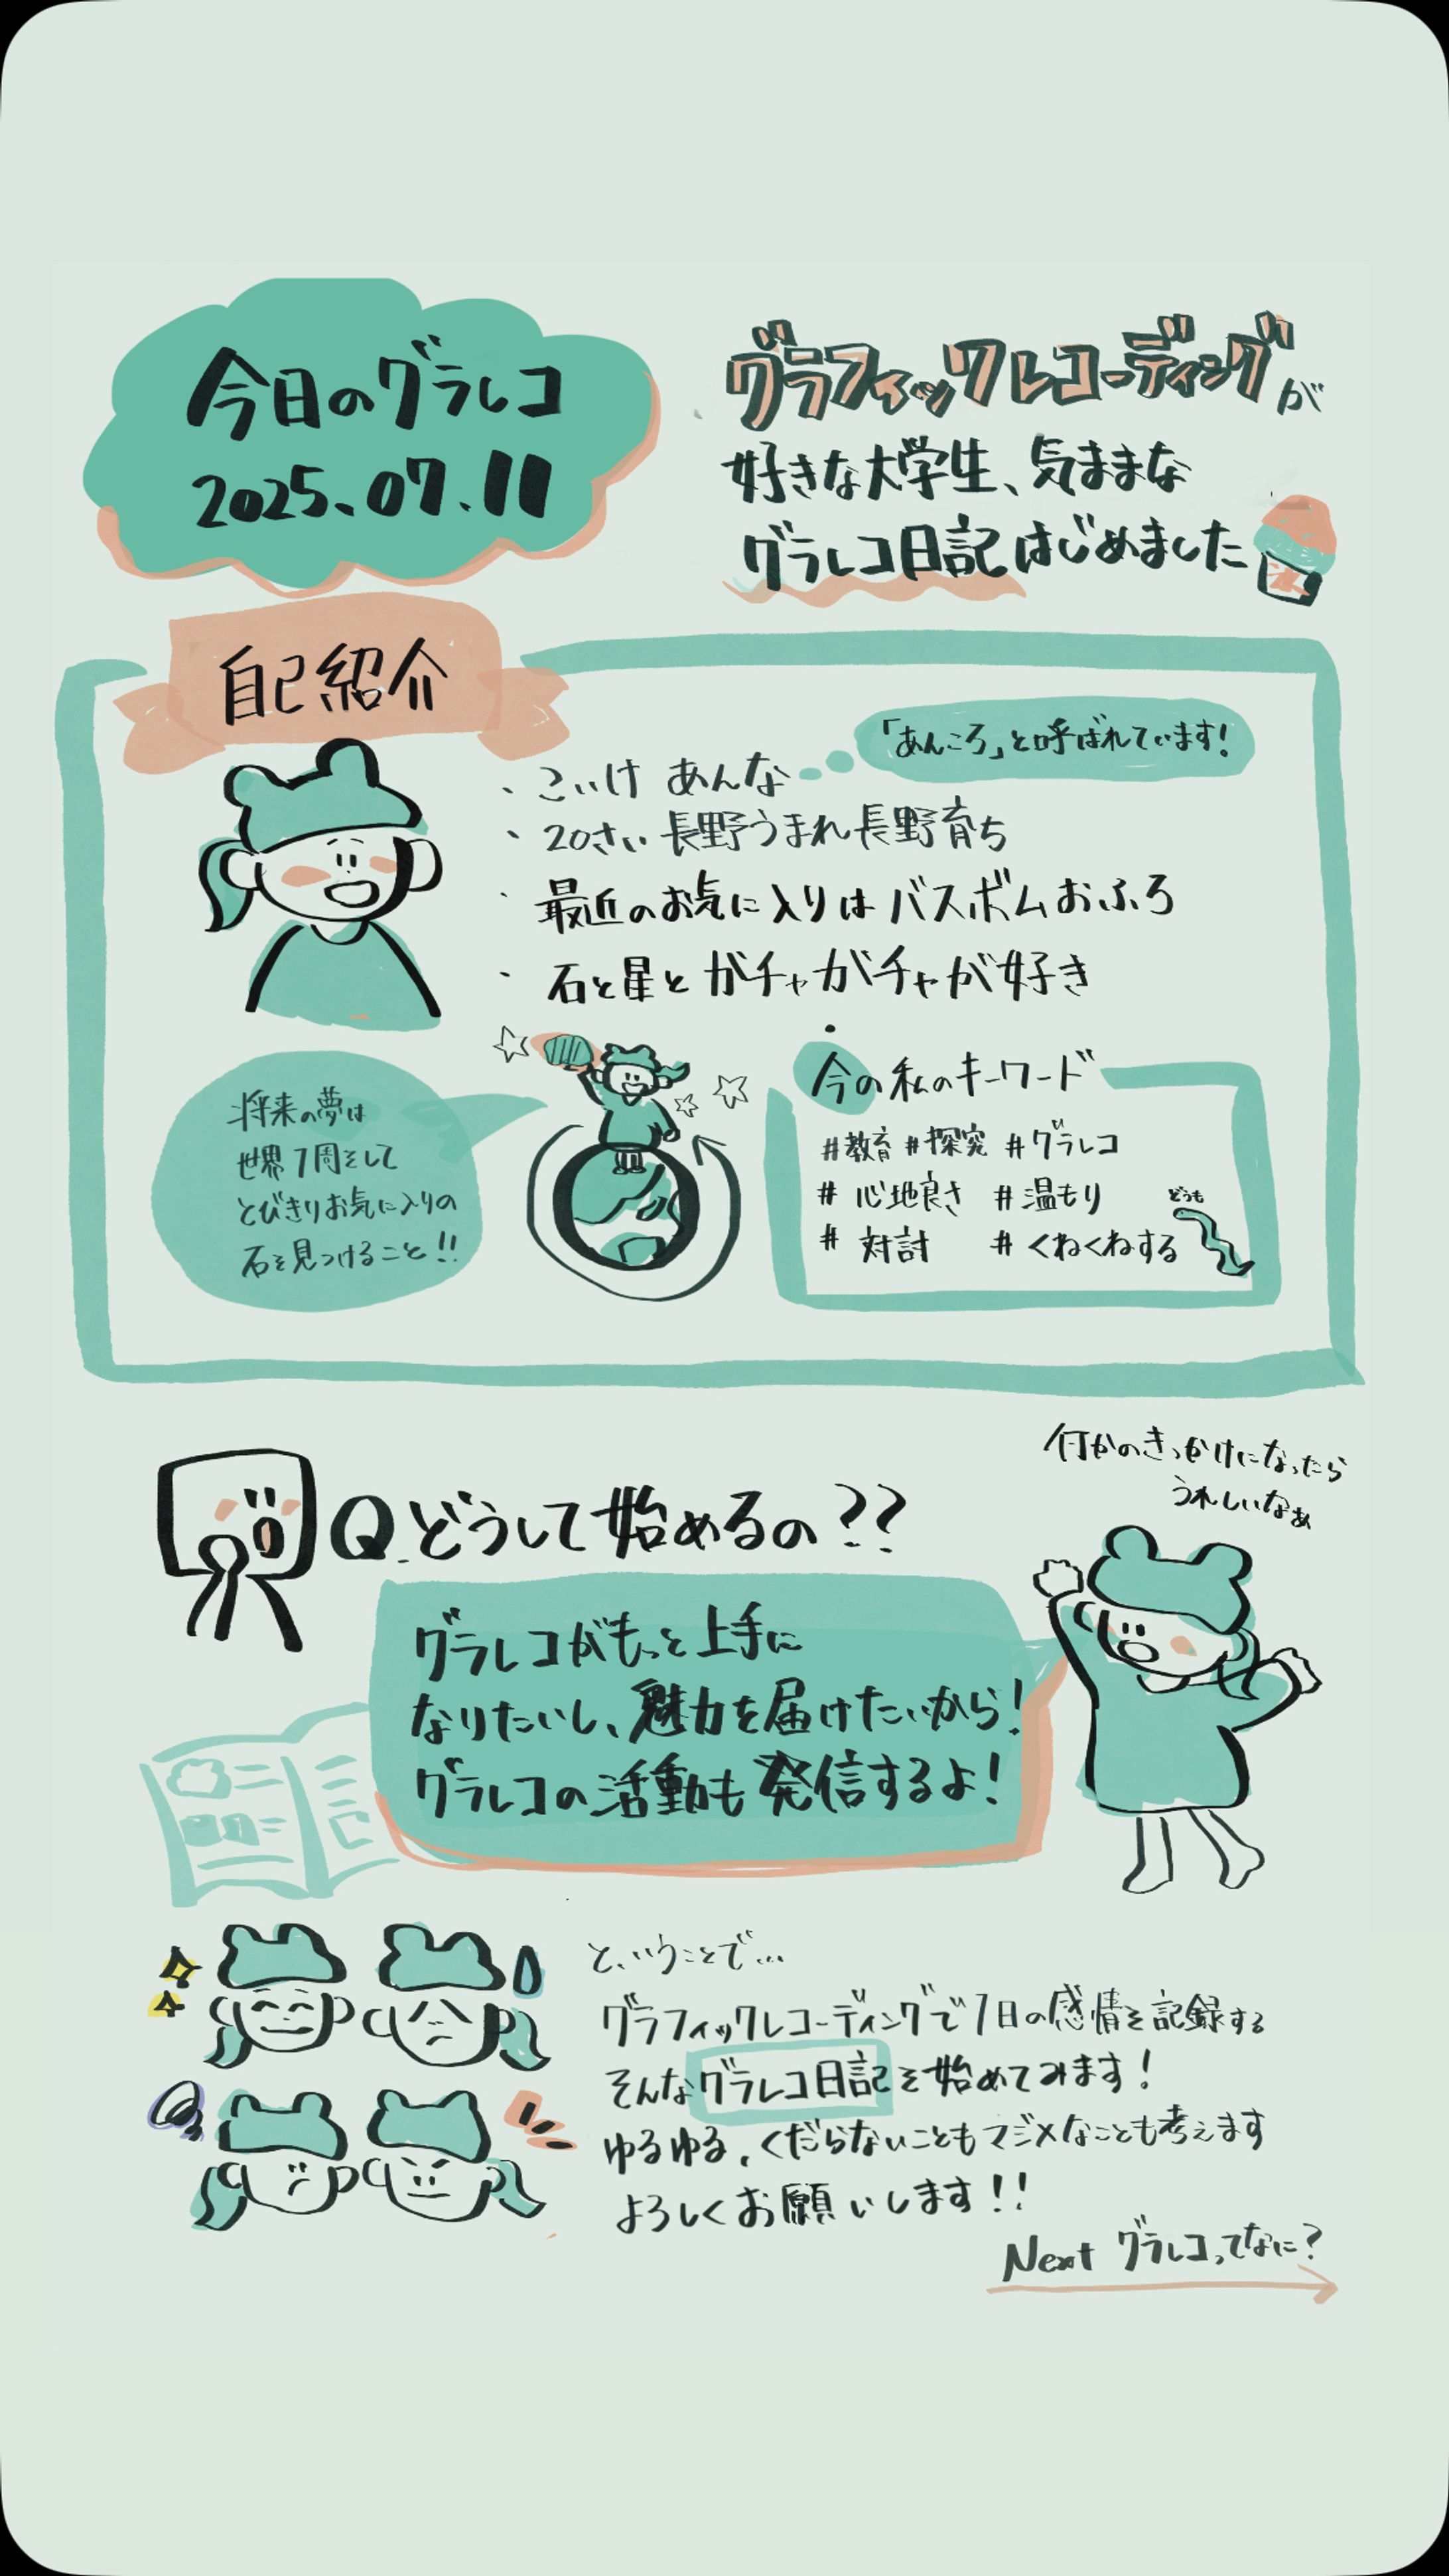 今日のグラレコ
2025.07.11
グラフィックレコーディングが
好きな大学生、気ままな
グラレコ日記はじめました
自己紹介
「あんころ」と呼ばれています!
・こいけ あんな
・20さい 長野うまれ長野育ち
・最近のお気に入りはバスボムおふろ
・石と星とガチャガチャが好き
将来の夢は
世界1周をして
とびきりお気に入りの
石を見つけること!!
今の私のキーワード
#教育 #探究 #グラレコ
#心地良さ #温もり
#対討 #くねくねする
どうも
何かのきっかけになったら
うれしいなぁ
Q.どうして始めるの??
グラレコがもっと上手に
なりたいし、魅力を届けたいから!
グラレコの活動も発信するよ!
と、いうことで…
グラフィックレコーディングで1日の感情を記録する
そんなグラレコ日記を始めてみます!
ゆるゆる、くだらないこともマジメなことも考えます
よろしくお願いします!!
Next グラレコってなに?